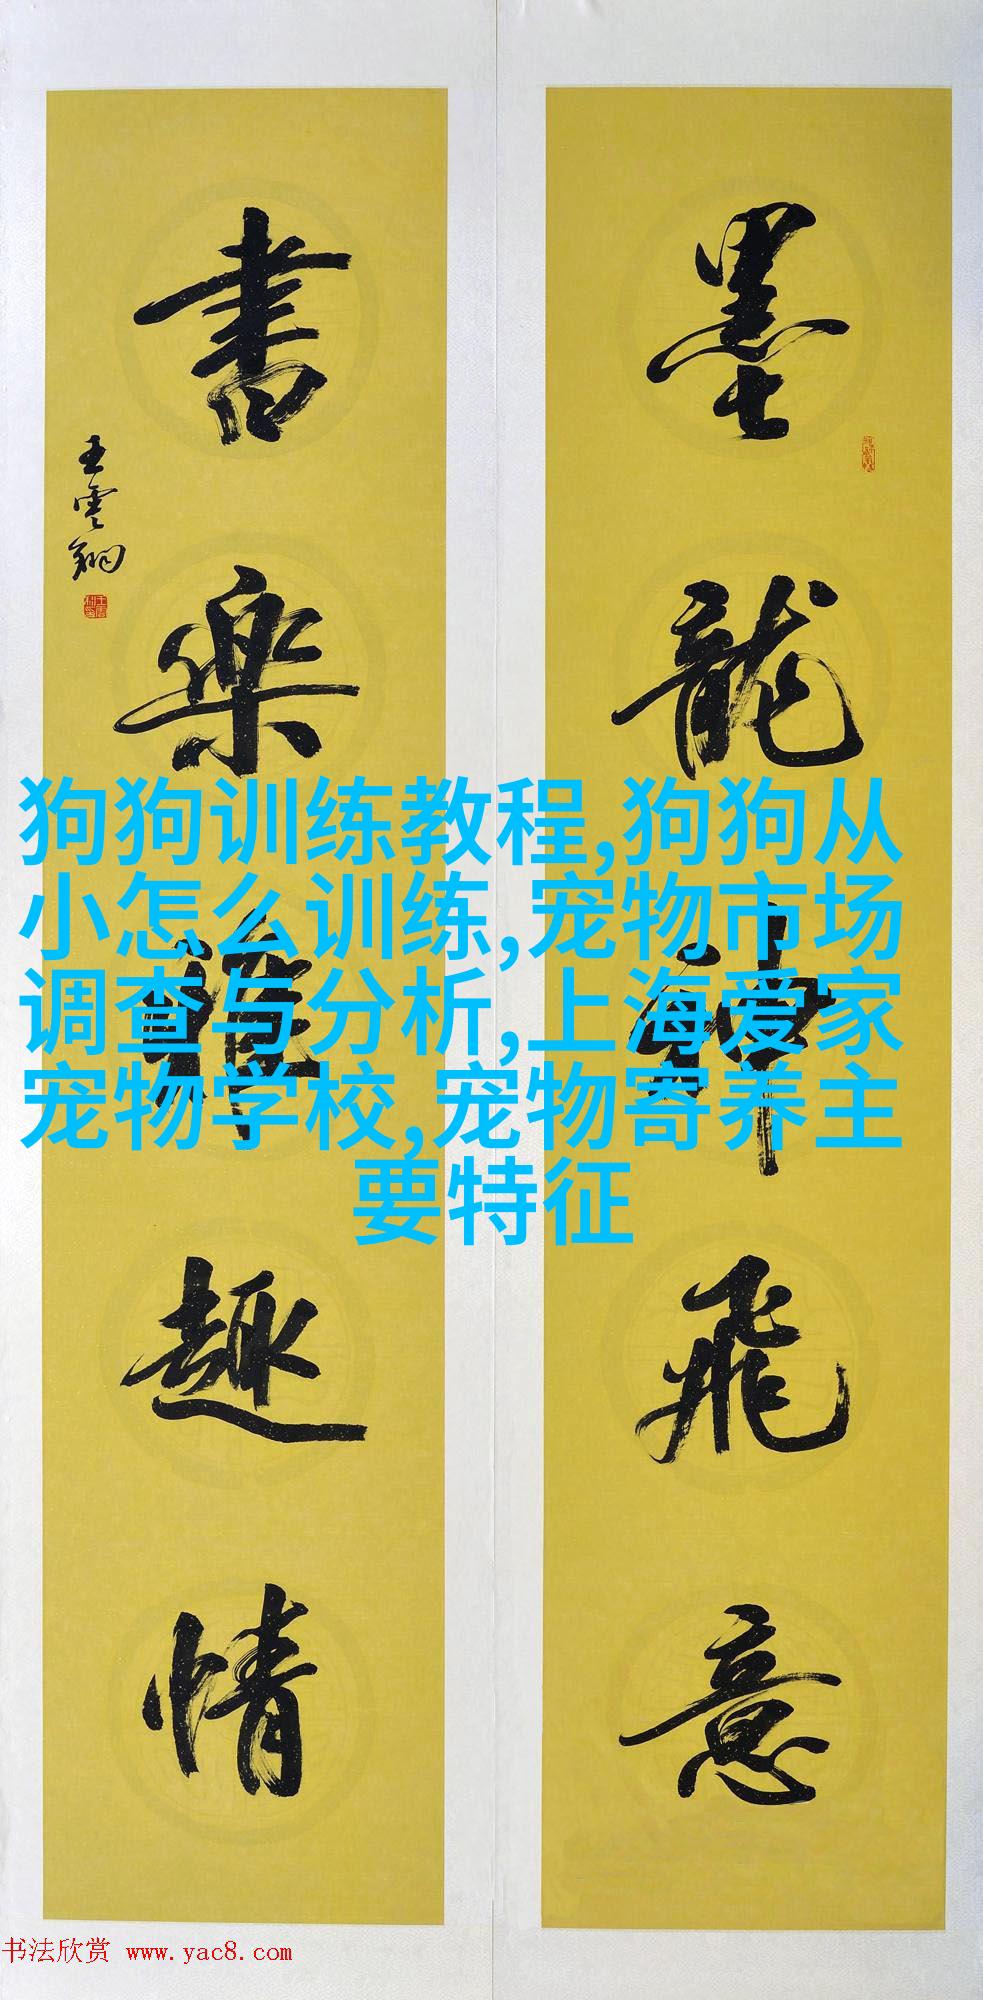 墨龍神飛意
書樂雅趣情
王雲翔
狗狗训练教程,狗狗从
小怎么训练,宠物市场
调查与分析,上海爱家
宠物学校,宠物寄养主
要特征
书法欣赏 www.yac8.com